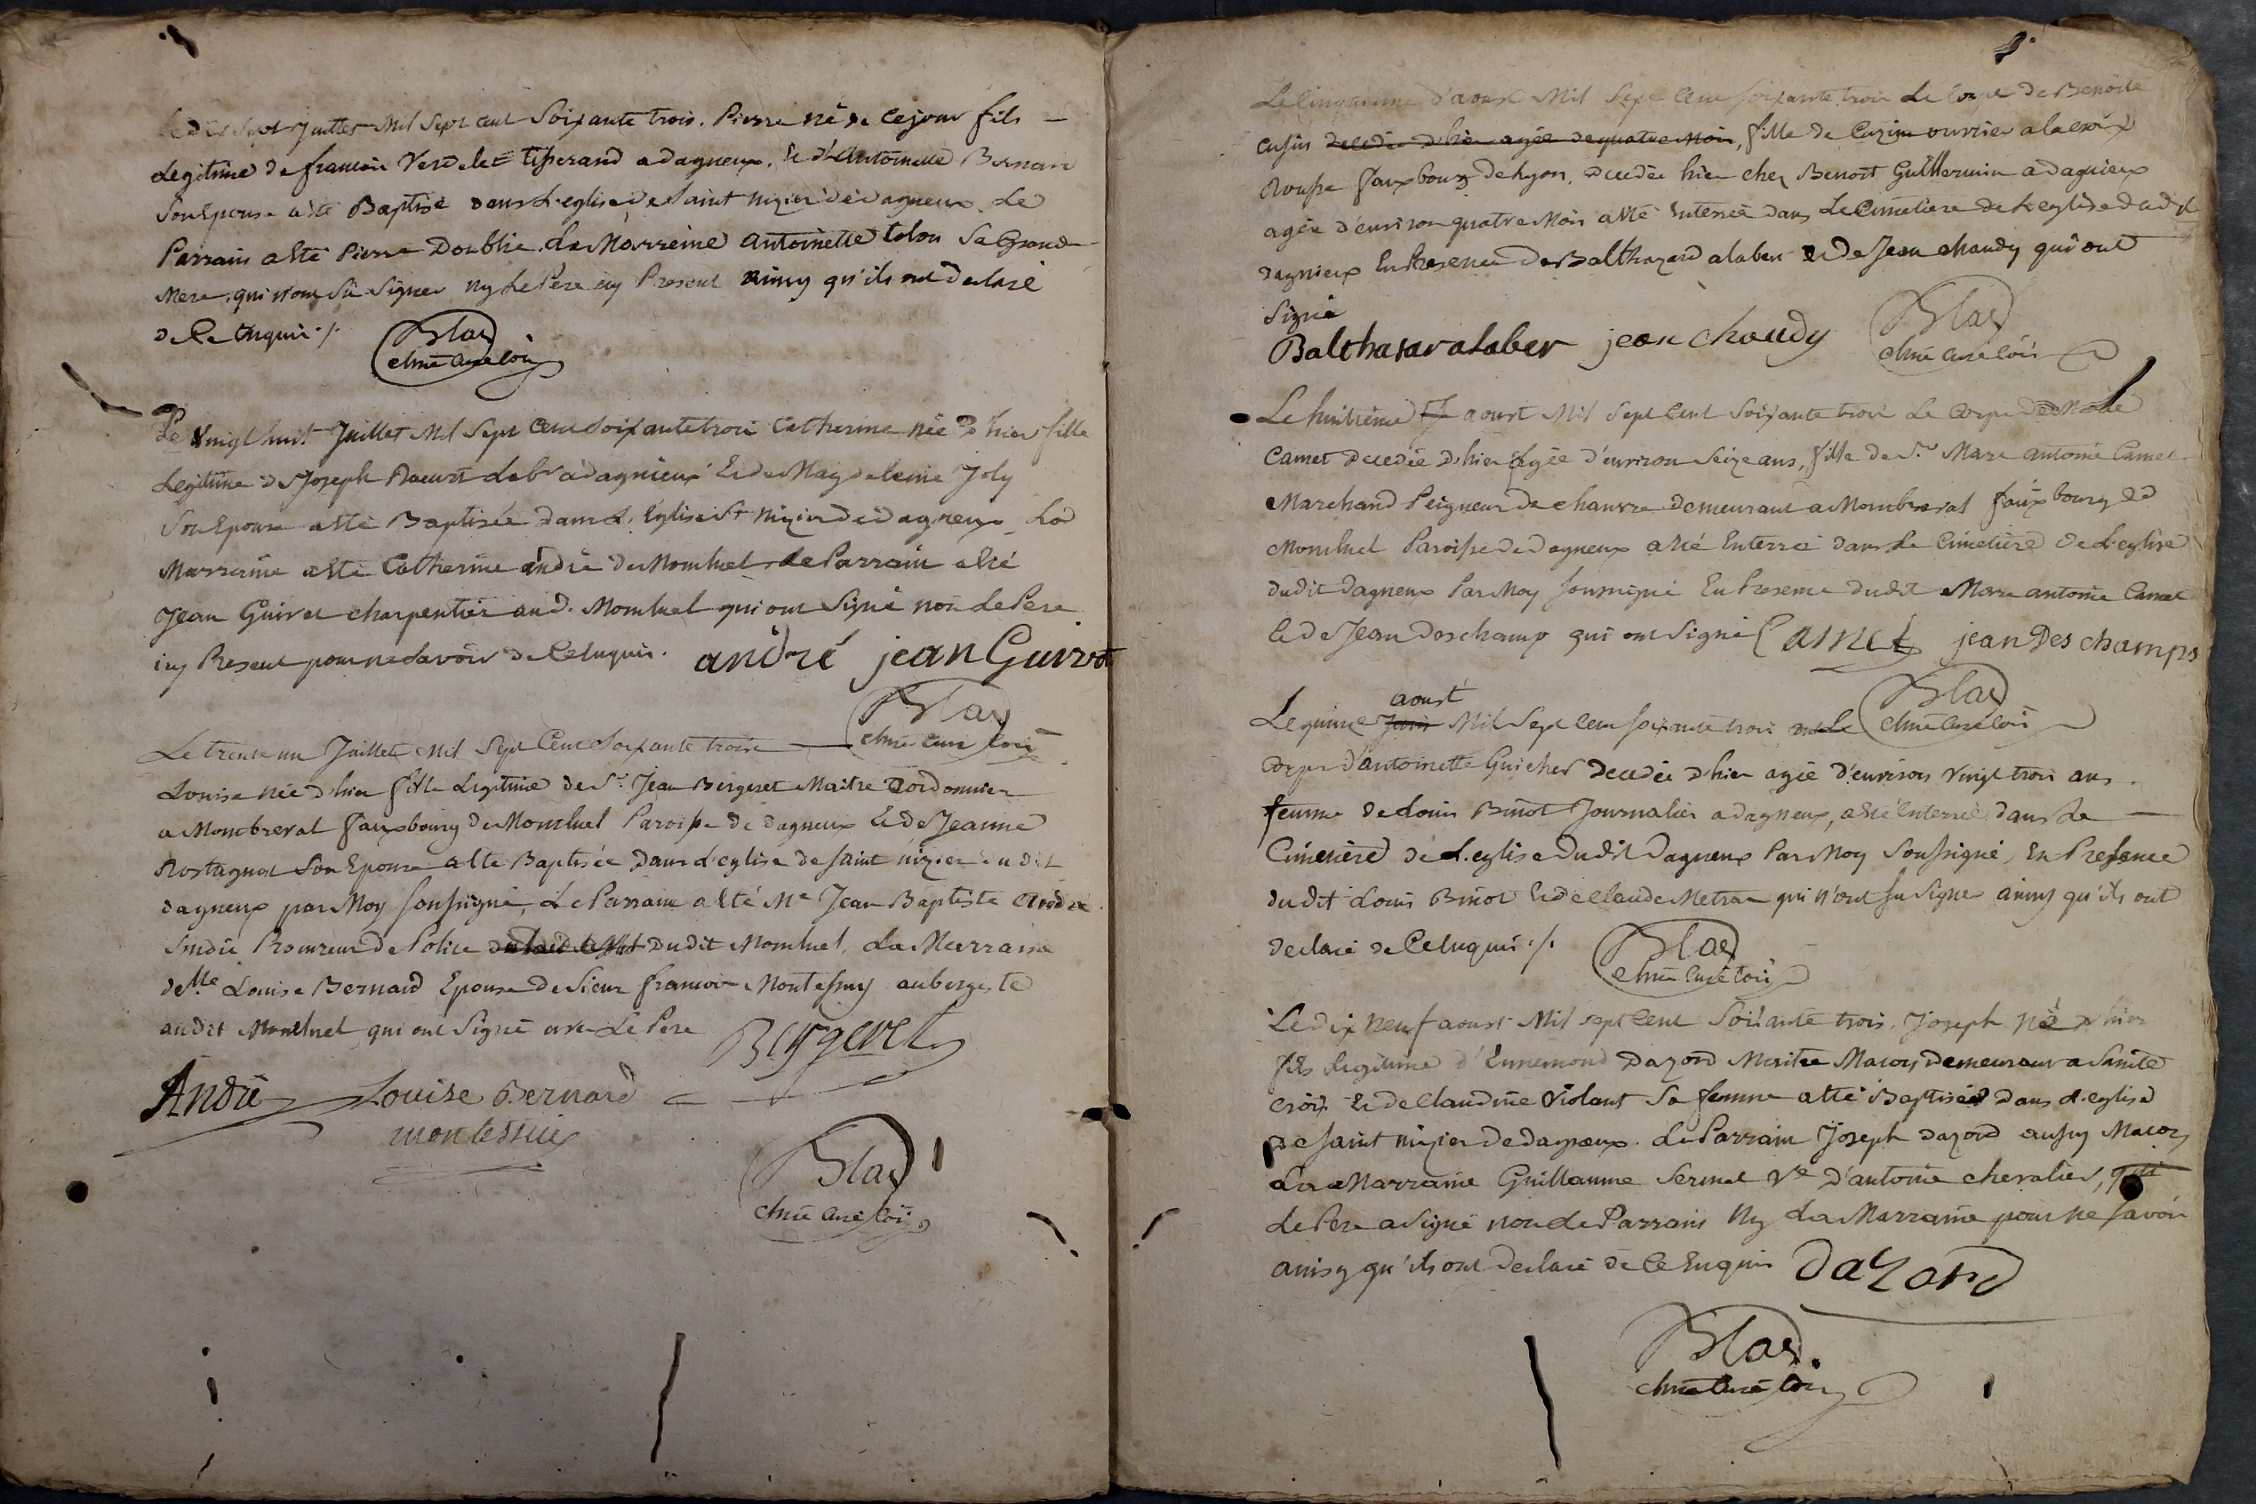 Le dix sept Juillet Mil Sept cent Soixante trois. Pierre né de cejour fils
Legitime de francois Verdelet tisserand a dagneux, & d'Antoinette Bernard
Son Epouse a été Baptisé dans L'eglise de Saint nizier de dagneux Le
Parrain a été Pierre Doublie La Marreine antoinette tolon Sa Grand
Mere, qui n'ont Sû Signer ny Le Pere icy Present ainsy qu'ils ont declaré
de Ce Enquis ./.
Blad
chne Curé Com
Le Vingt huit Juillet Mil Sept Cent Soixante trois Catherine née d'hier fille
Legitime de Joseph labr a dagnieux Et de Magdeleine Joly
Son Epouse a été Baptisée dans L'Eglise St nizier de dagneux La
Marreine a été Catherine andré de Monluel Le Parrain a été
Jean Guivet charpentier aud. Monluel qui ont Signé non Le Pere
icy Present pour ne Savoir de Ce Enquis. andré jean Guivet
Blad
chne Curé Com
Le trente un Juillet Mil Sept Cent Soixante trois
Louise née d'hier fille Legitime de Sr. Jean Bergeret Maitre Cordonnier
a Montbreval fauxbourg de Monluel Paroisse de dagneux Et de Jeanne
Rostagnat Son Epouse a été Baptisée dans L'eglise de Saint nizier du dit
dagneux par Moy Soussigné, Le Parrain a été Me Jean Baptiste André
Sindic Procureur de Police dudit Monluel, La Marraine
delle Louise Bernard Epouse de Sieur francois Montessuy aubergiste
audit Monluel qui ont Signé avec Le Pere Bergeret
André Louise Bernard
montessuy
Blad
chne Curé Com
Le Cinquieme d'aoust Mil Sept Cent Soixante trois Le Corps de Benoite
Cusin decedée d'hier agée de quatre Mois, fille de Cuzin ouvrier a la croix
Rousse fauxbourg de Lyon, decedée hier chez Benoit Guillermin a dagnieux
agée d'environ quatre Mois a été Enterrée dans Le Cimetiere de L'eglise dudit
dagnieux En Presence de Balthazard alaber & de Jean chaudy qui ont
Signé
Balthasar alaber jean chaudy
Blad
chne Curé Com
Le huitieme aoust Mil Sept Cent Soixante trois Le Corps de
Camet decedée d'hier Agée d'environ Seize ans, fille de Sr. Marc antoine Camet
Marchand Peigneur de chanvre demeurant a Montbreval fauxbourg de
Monluel Paroisse de dagneux a été Enterrée dans Le Cimetiere de L'eglise
dudit dagneux Par Moy Soussigné En Presence dudit Marc antoine Camet
& de Jean Deschamps qui ont Signé Camet jean Des champs
Blad
chne Curé Com
aoust
Le quinze Juin Mil Sept Cent Soixante trois Le
Corps d'antoinette Guichet decedée d'hier agée d'environ Vingt trois ans
femme de Louis Binot Journalier a dagneux, a été Enterrée dans Le
Cimetiere de L'eglise dudit dagneux Par Moy Soussigné, En Presence
dudit Louis Binot & de Claude Metras qui n'ont Su Signer ainsy qu'ils ont
declaré de Ce Enquis ./.
Blad
chne Curé Com
Le dix neuf aoust Mil Sept Cent Soixante trois, Joseph né d'hier
fils Legitime d'Ennemond Dazord Maitre Maçon demeurant a Sainte
Croix & de Claudine Violant Sa femme a été Baptisé dans L'eglise
de Saint nizier de dagneux. Le Parrain Joseph dazord aussy Maçon
La Marraine Guillaume Sermet Ve d'antoine chevalier, qui
Le Pere a Signé non Le Parrain Ny La Marraine pour ne Savoir
ainsy qu'ils ont declaré de Ce Enquis Dazord
Blad
chne Curé Com